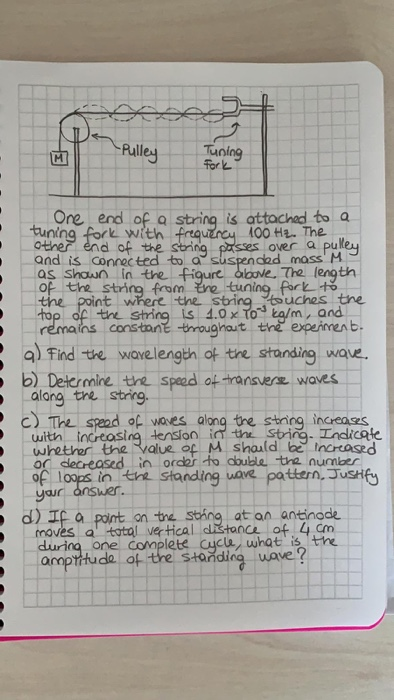 M
Pulley
Tuning
Fork
One end of a string is attached to a
tuning fork with frequency 100 Hz. The
other end of the string passes over a pulley
and is connected to a suspended mass M
as shown in the figure above. The length
of the string from the tuning fork to
the point where the string touches the
top of the string is 1.0 x 10⁻³ kg/m, and
remains constant throughout the experiment.
a) Find the wavelength of the standing wave.
b) Determine the speed of transverse waves
along the string.
c) The speed of waves along the string increases
with increasing tension in the string. Indicate
whether the value of M should be increased
or decreased in order to double the number
of loops in the standing wave pattern. Justify
your answer.
d) If a point on the string at an antinode
moves a total vertical distance of 4 cm
during one complete cycle, what is the
amplitude of the standing wave?